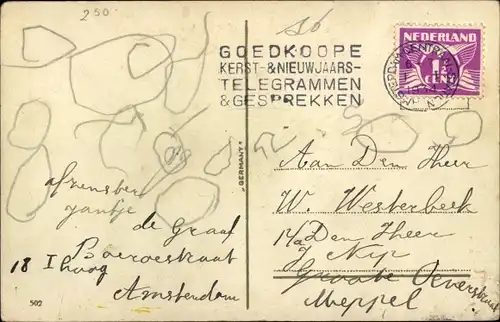 250
GOEDKOOPE
KERST- & NIEUWJAARS-
TELEGRAMMEN
& GESPREKKEN
NEDERLAND
1½
CENT
"GERMANY"
afzender
Jantje
de Graaf
18 I hoog
Amsterdam
502
Aan Den Heer
W. Westerbeek
p/a Den Heer
J Nijp
Groote Oeverstraat
Meppel